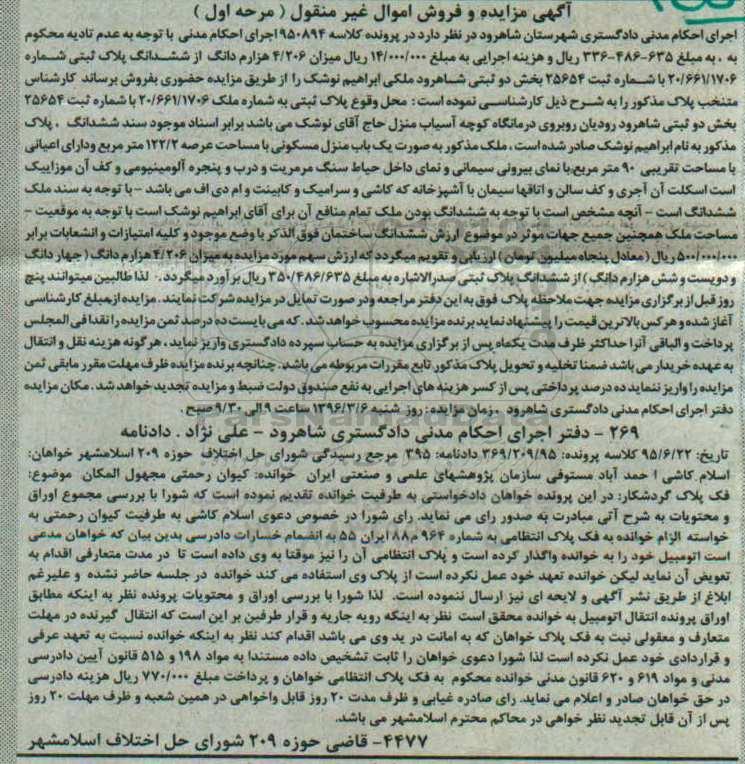 آگهی مزایده و فروش اموال غیر منقول ( مرحه اول )
اجرای احکام مدنی دادگستری شهرستان شاهرود در نظر دارد در پرونده کلاسه ۹۵۰۸۹۴ اجرای احکام مدنی با توجه به عدم تادیه محکوم
به ، به مبلغ ۶۳۵-۴۸۶-۳۳۶ ریال و هزینه اجرایی به مبلغ ۱۴/۰۰۰/۰۰۰ ریال میزان ۴/۲۰۶ هزارم دانگ از ششدانگ پلاک ثبتی شماره
۲۰/۶۶۱/۱۷۰۶ با شماره ثبت ۲۵۶۵۴ بخش دو ثبتی شاهرود ملکی ابراهیم نوشک را از طریق مزایده حضوری بفروش برساند کارشناس
متنخب پلاک مذکور را به شرح ذیل کارشناسی نموده است : محل وقوع پلاک ثبتی به شماره ملک ۲۰/۶۶۱/۱۷۰۶ با شماره ثبت ۲۵۶۵۴
بخش دو ثبتی شاهرود رودیان روبروی درمانگاه کوچه آسیاب منزل حاج آقای نوشک می باشد برابر اسناد موجود سند ششدانگ ، پلاک
مذکور به نام ابراهیم نوشک صادر شده است ، ملک مذکور به صورت یک باب منزل مسکونی با مساحت عرصه ۱۲۲/۲ متر مربع ودارای اعیانی
با مساحت تقریبی ۹۰ متر مربع با نمای بیرونی سیمانی و نمای داخل حیاط سنگ مرمریت و درب و پنجره آلومینیومی و کف آن موزاییک
است اسکلت آن آجری و کف سالن و اتاقها سیمان با آشپزخانه که کاشی و سرامیک و کابینت و ام دی اف می باشد – با توجه به سند ملک
ششدانگ است – آنچه مشخص است با توجه به ششدانگ بودن ملک تمام منافع آن برای آقای ابراهیم نوشک است با توجه به موقعیت –
مساحت ملک همچنین جمیع جهات موثر در موضوع ارزش ششدانگ ساختمان فوق الذکر با وضع موجود و کلیه امتیازات و انشعابات برابر
۵۰۰/۰۰۰/۰۰۰ ریال ( معادل پنجاه میلیون تومان ) ارزیابی و تقویم میگردد که ارزش سهم مورد مزایده به میزان ۴/۲۰۶ هزارم دانگ ( چهار دانگ
و دویست و شش هزارم دانگ ) از ششدانگ پلاک ثبتی صدرالاشاره به مبلغ ۳۵۰/۴۸۶/۶۳۵ ریال برآورد میگردد . لذا طالبین میتوانند پنج
روز قبل از برگزاری مزایده جهت ملاحظه پلاک فوق به این دفتر مراجعه ودر صورت تمایل در مزایده شرکت نمایند . مزایده ازمبلغ کارشناسی
آغاز شده و هر کس بالاترین قیمت را پیشنهاد نماید برنده مزایده محسوب خواهد شد. که می بایست ده درصد ثمن مزایده را نقدا فی المجلس
پرداخت و الباقی آنرا حداکثر ظرف مدت یکماه پس از برگزاری مزایده به حساب سپرده دادگستری واریز نماید ، هرگونه هزینه نقل و انتقال
به عهده خریدار می باشد ضمنا تخلیه و تحویل پلاک مذکور تابع مقررات مربوطه می باشد. چنانچه برنده مزایده ظرف مهلت مقرر مابقی ثمن
مزایده را واریز ننماید ده درصد پرداختی پس از کسر هزینه های اجرایی به نفع صندوق دولت ضبط و مزایده تجدید خواهد شد . مکان مزایده
دفتر اجرای احکام مدنی دادگستری شاهرود . زمان مزایده : روز شنبه ۱۳۹۶/۳/۶ ساعت ۹ الی ۹/۳۰ صبح .
۲۶۹ – دفتر اجرای احکام مدنی دادگستری شاهرود – علی نژاد . دادنامه
تاریخ: ۹۵/۶/۲۲ کلاسه پرونده: ۳۶۹/۲۰۹/۹۵ دادنامه: ۳۹۵ مرجع رسیدگی شورای حل اختلاف حوزه ۲۰۹ اسلامشهر خواهان:
اسلام کاشی ا حمد آباد مستوفی سازمان پژوهشهای علمی و صنعتی ایران خوانده: کیوان رحمتی مجهول المکان موضوع:
فک پلاک گردشکار: در این پرونده خواهان دادخواستی به طرفیت خوانده تقدیم نموده است که شورا با بررسی مجموع اوراق
و محتویات به شرح آتی مبادرت به صدور رای می نماید. رای شورا در خصوص دعوی اسلام کاشی به طرفیت کیوان رحمتی به
خواسته الزام خوانده به فک پلاک انتظامی به شماره ۹۶۴ م۸۸ ایران ۵۵ به انضمام خسارات دادرسی بدین بیان که خواهان مدعی
است اتومبیل خود را به خوانده واگذار کرده است و پلاک انتظامی آن را نیز موقتا به وی داده است تا در مدت متعارفی اقدام به
تعویض آن نماید لیکن خوانده تعهد خود عمل نکرده است از پلاک وی استفاده می کند خوانده در جلسه حاضر نشده و علیرغم
ابلاغ از طریق نشر آگهی و لایحه ای نیز ارسال ننموده است. لذا شورا با بررسی اوراق و محتویات پرونده نظر به اینکه مطابق
اوراق پرونده انتقال اتومبیل به خوانده محقق است نظر به اینکه رویه جاریه و قرار طرفین بر این است که انتقال گیرنده در مهلت
متعارف و معقولی نیت به فک پلاک خواهان که به امانت در ید وی می باشد اقدام کند نظر به اینکه خوانده نسبت به تعهد عرفی
و قراردادی خود عمل نکرده است لذا شورا دعوی خواهان را ثابت تشخیص داده مستندا به مواد ۱۹۸ و ۵۱۵ قانون آیین دادرسی
مدنی و مواد ۶۱۹ و ۶۲۰ قانون مدنی خوانده محکوم به فک پلاک انتظامی خواهان و پرداخت مبلغ ۷۷۰/۰۰۰ ریال هزینه دادرسی
در حق خواهان صادر و اعلام می نماید. رای صادره غیابی و ظرف مدت ۲۰ روز قابل واخواهی در همین شعبه و ظرف مهلت ۲۰ روز
پس از آن قابل تجدید نظر خواهی در محاکم محترم اسلامشهر می باشد.
۴۴۷۷- قاضی حوزه ۲۰۹ شورای حل اختلاف اسلامشهر